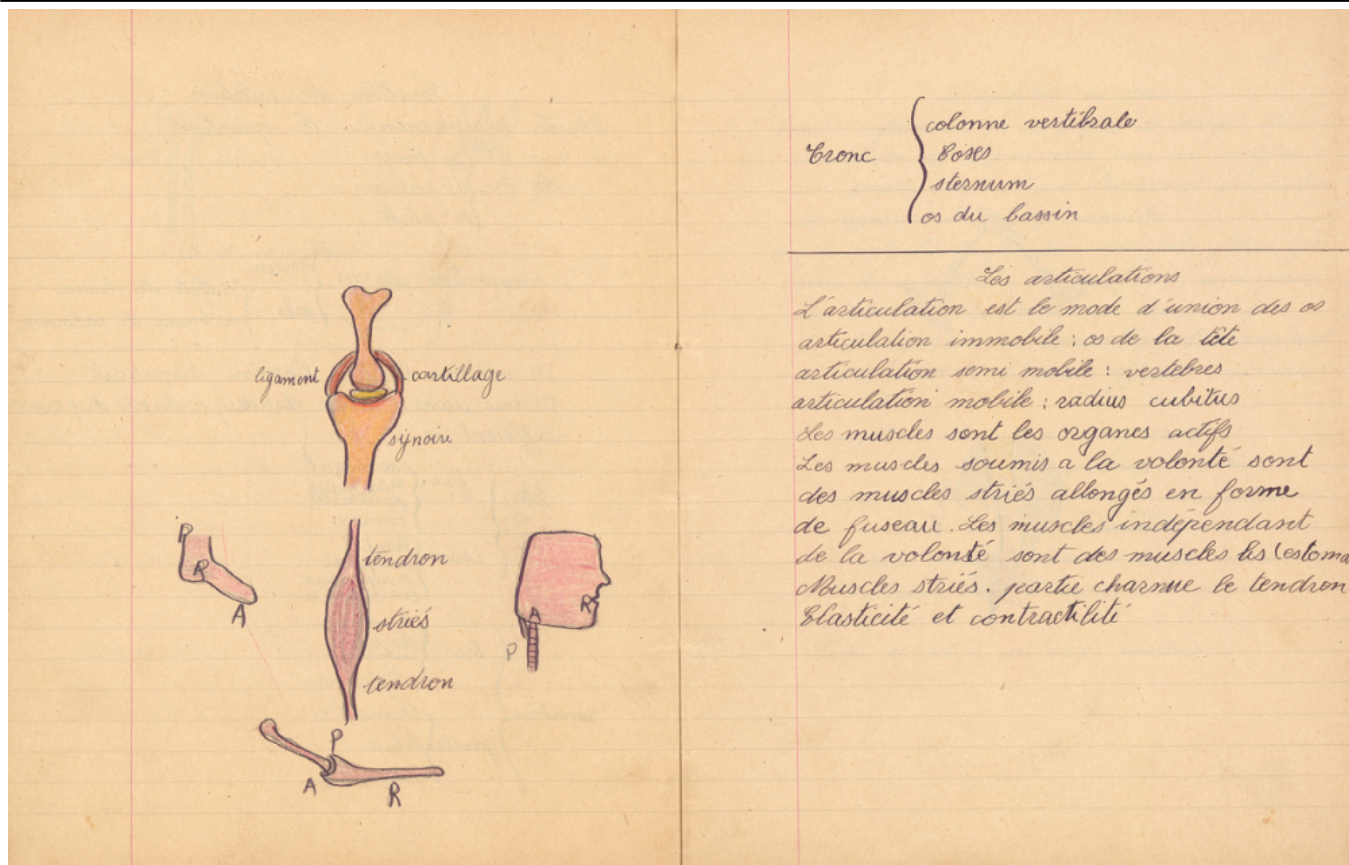 ligament cartillage
synoire
P
R
A
tendron
striés
tendron
A
R
P
P
A
R
Tronc
colonne vertébrale
Coses
sternum
os du bassin
Les articulations
L'articulation est le mode d'union des os
articulation immobile : os de la tête
articulation semi mobile : vertebres
articulation mobile : radius cubitus
Les muscles sont les organes actifs
Les muscles soumis a la volonté sont
des muscles striés allongés en forme
de fuseau. Les muscles indépendant
de la volonté sont des muscles lis (estoma
Muscles striés. partie charnue le tendron
Elasticité et contractilité